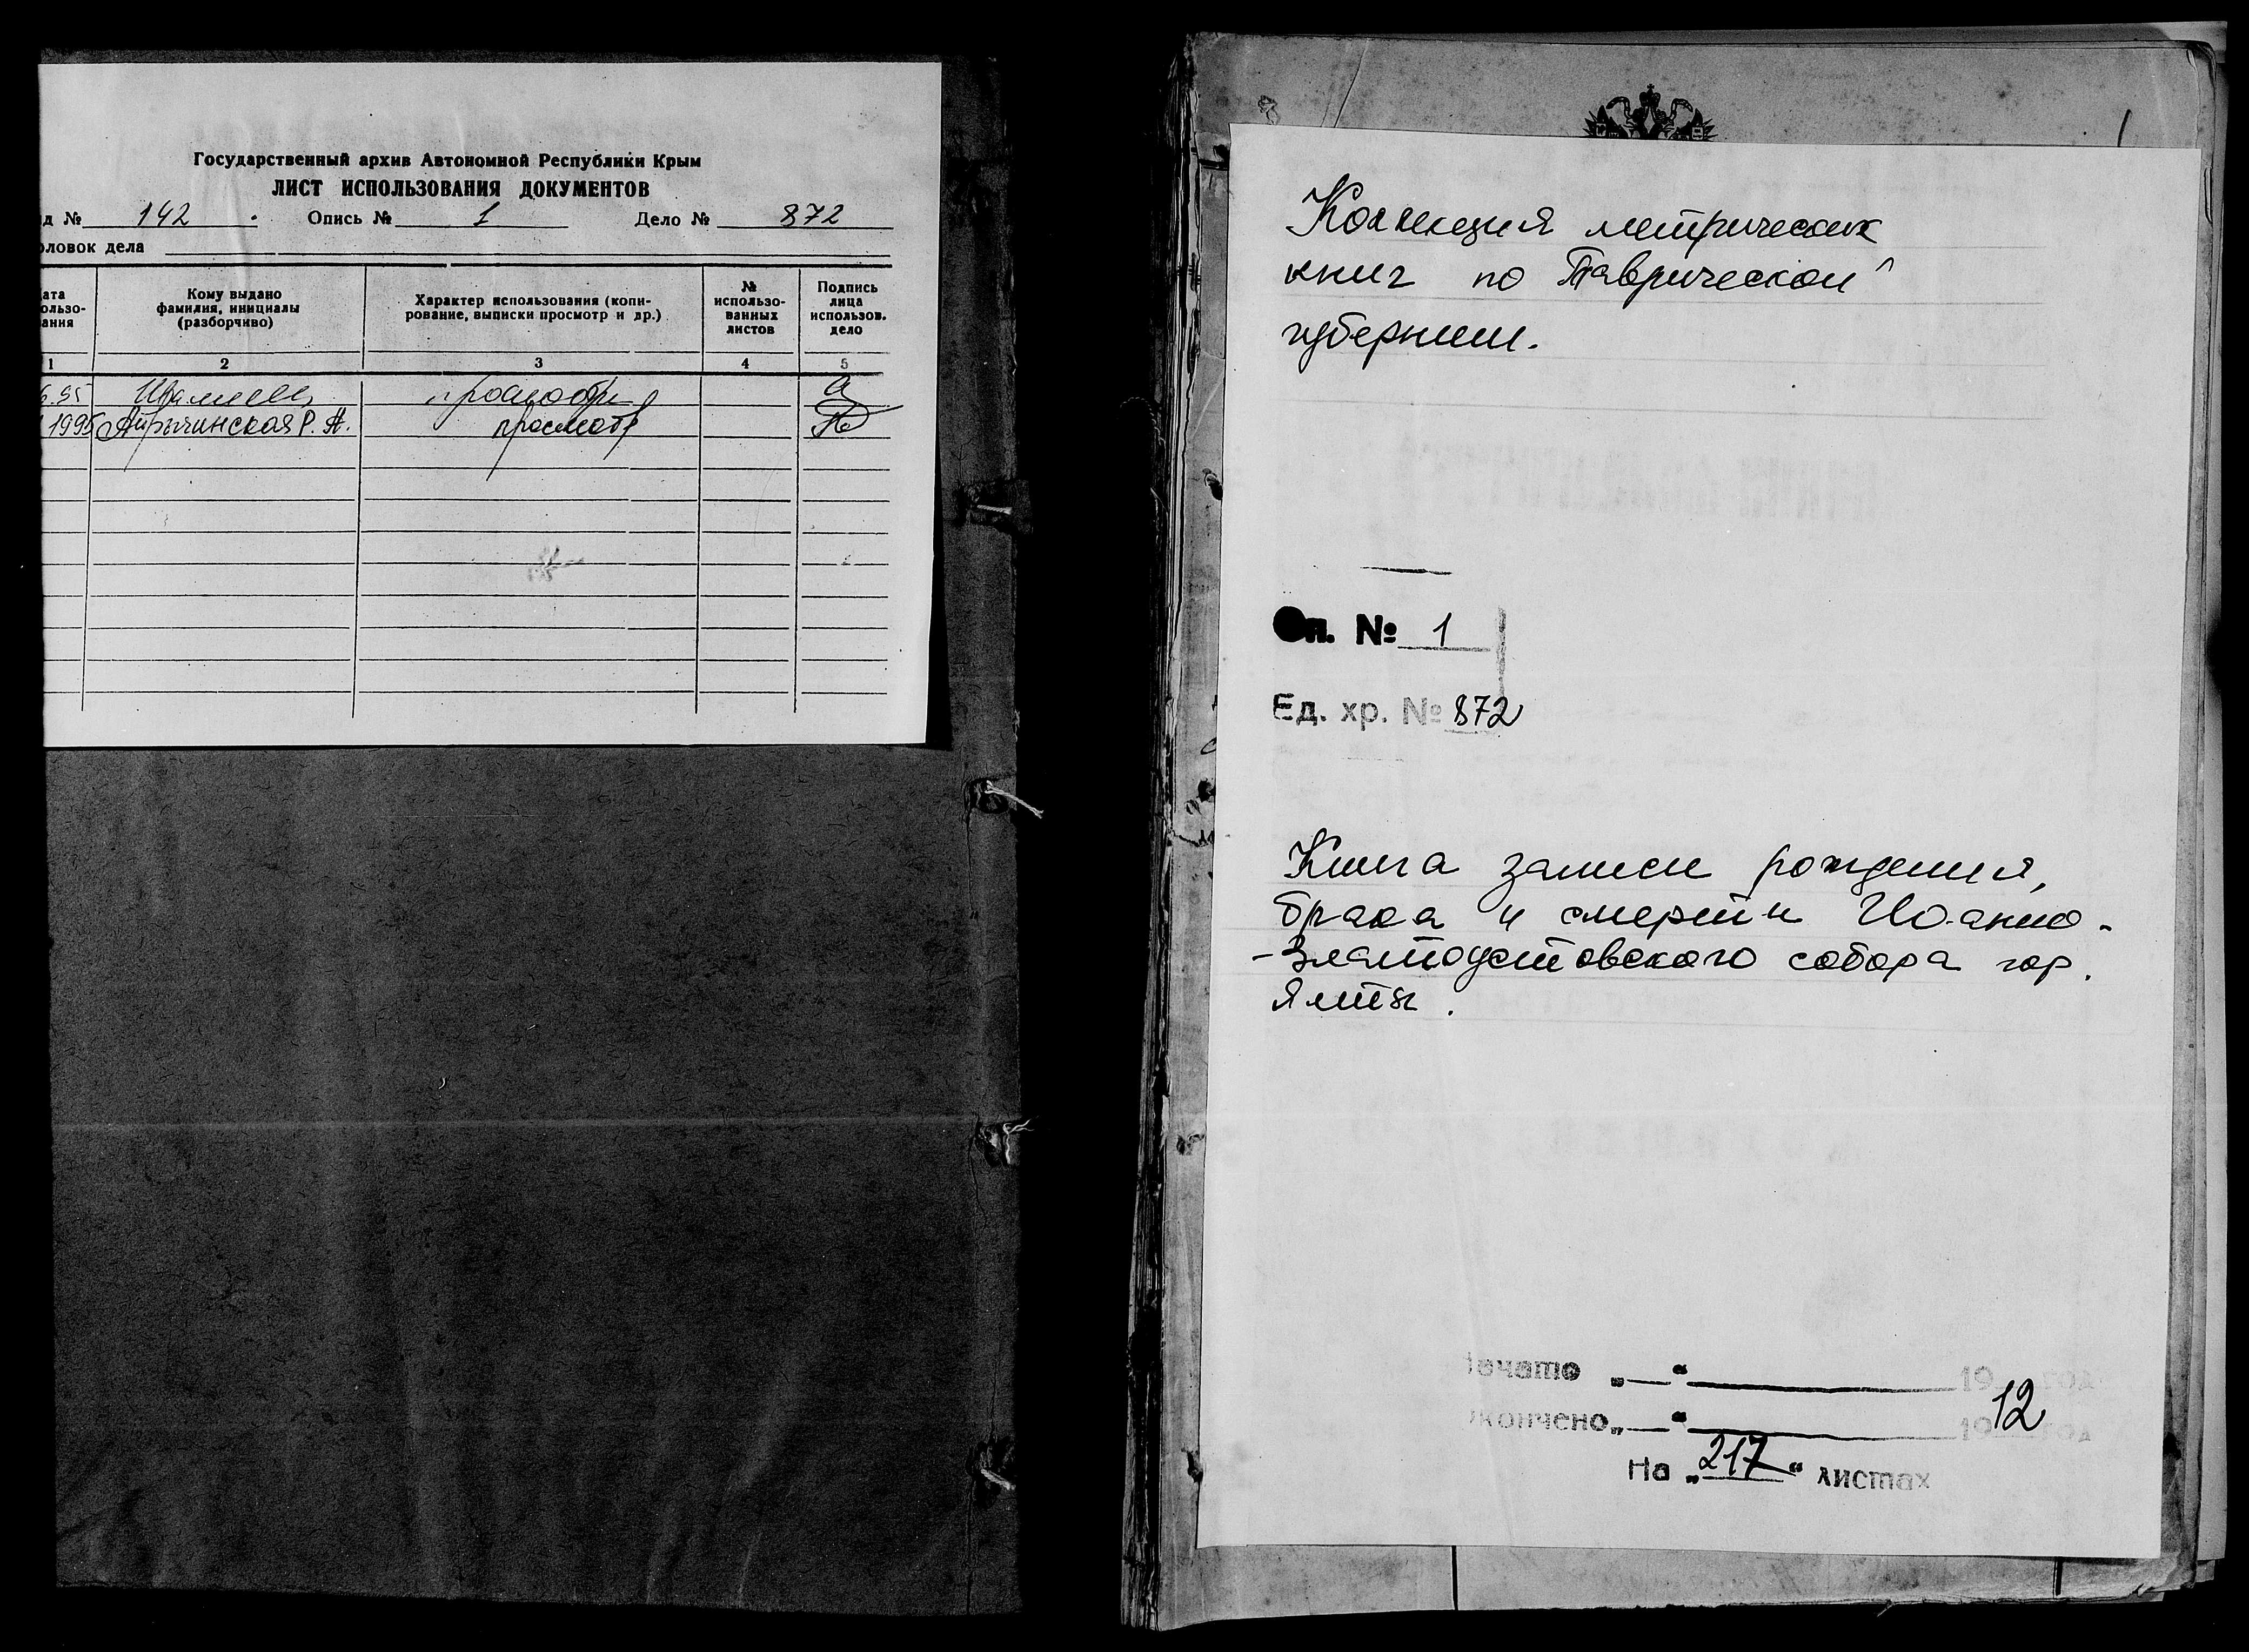 Государственный архив Автономной Республики Крым
ЛИСТ ИСПОЛЬЗОВАНИЯ ДОКУМЕНТОВ
д № 142 Опись № 1 Дело № 872
оловок дела
ата
ользо-
ания
Кому выдано
фамилия, инициалы
(разборчиво)
Характер использования (копи-
рование, выписки просмотр и др.)
№
использо-
ванных
листов
Подпись
лица
использов.
дело
1 2 3 4 5
6.95 просмотр
1995 Айрычинская Р. А. просмотр
Коллекция метрических
книг по Таврической
губернии.
Оп. № 1
Ед. хр. № 872
Книга записи рождения,
брака и смерти Иоанно-
-Златоустовского собора гор.
Ялты.
Начато „ “ 19 год
кончено „ “ 1912 год
На „217“ листах